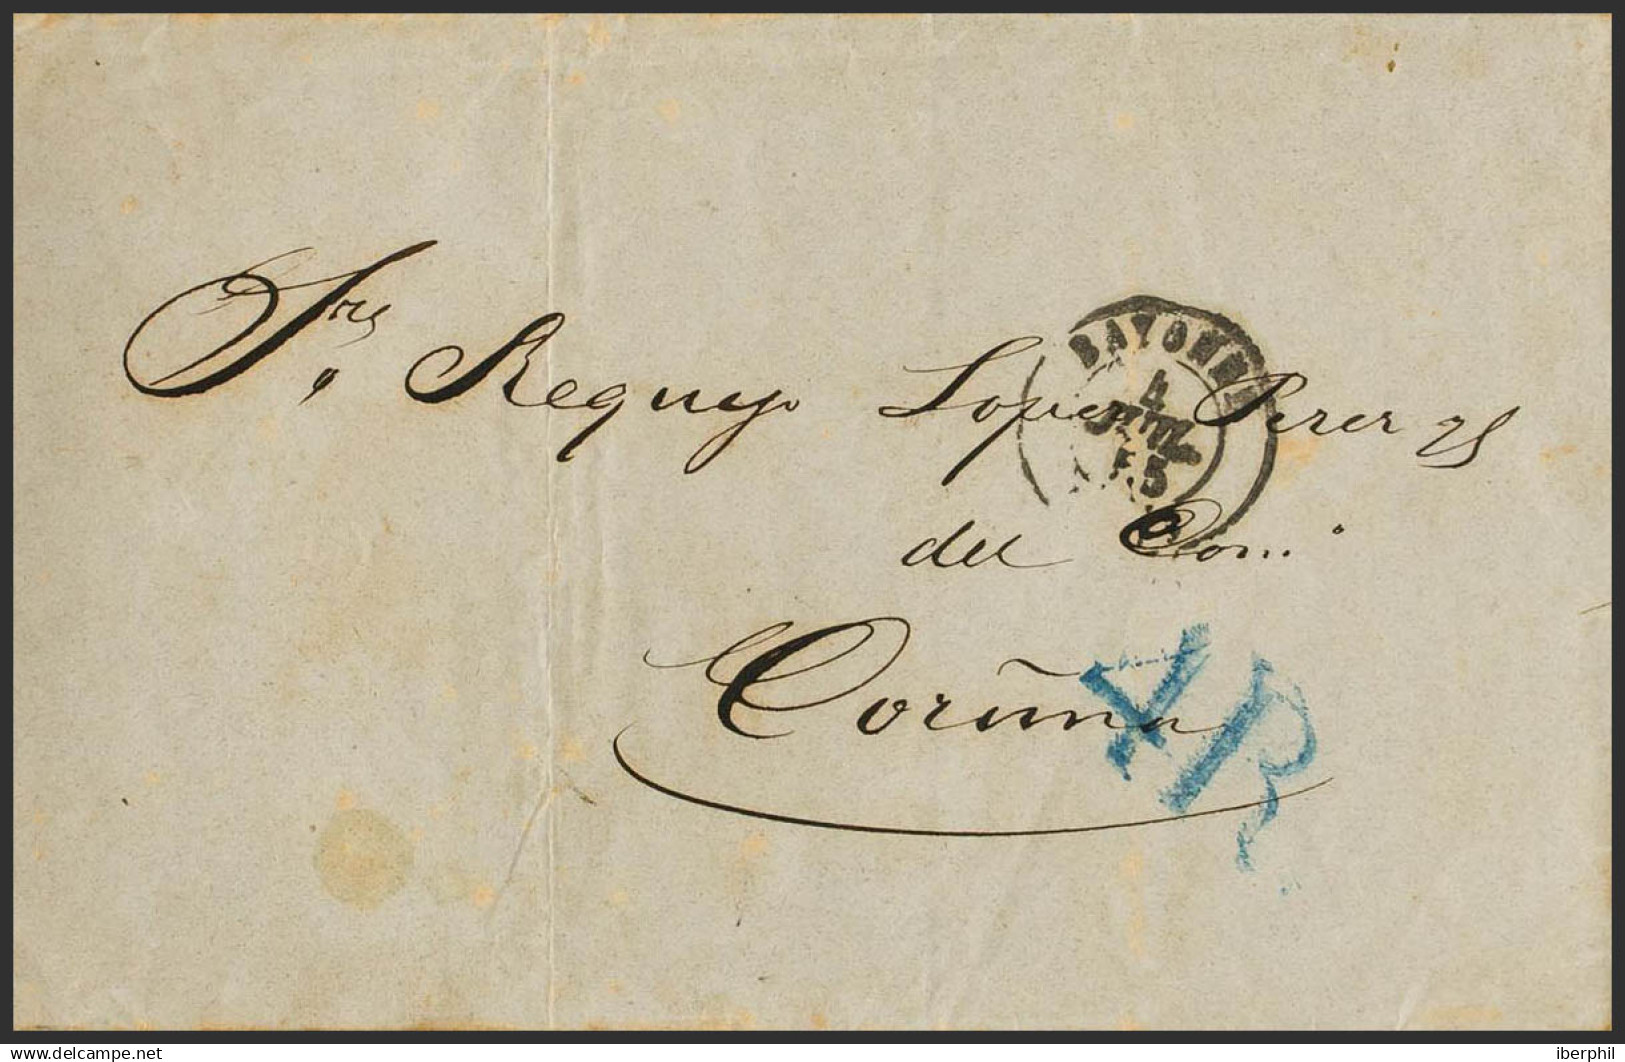 Sres Requejo Lopez Perez y
del Com.o
Coruña
BAYONNE
4
JUIL.
55
4R
www.delcampe.net
iberphil